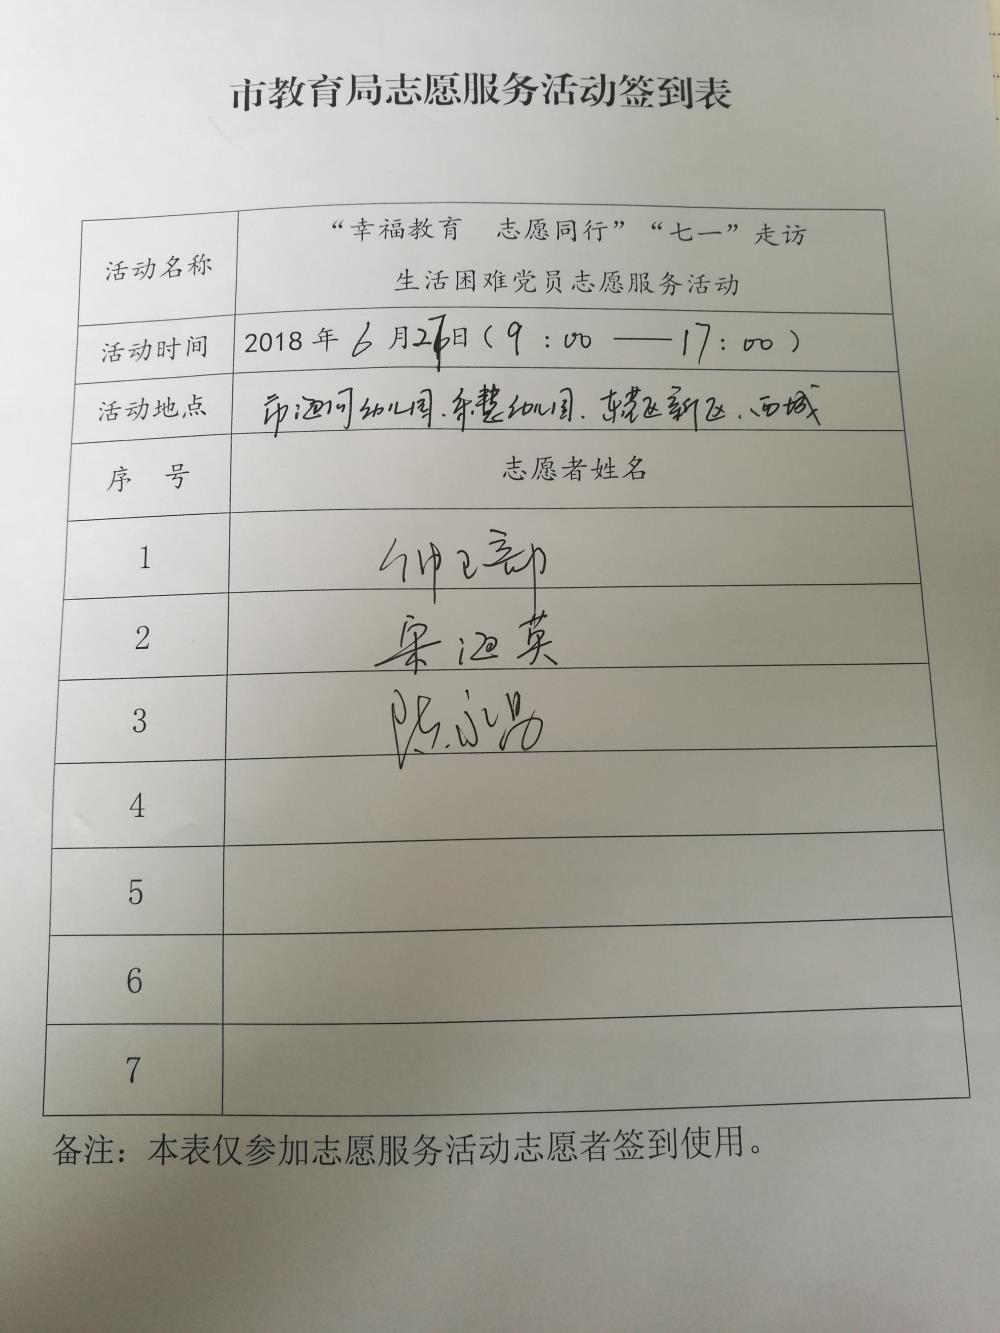 市教育局志愿服务活动签到表
活动名称
“幸福教育 志愿同行”“七一”走访
生活困难党员志愿服务活动
活动时间
2018 年 6 月 2 日（9 : 00 —— 17 : 00 ）
活动地点
市海河幼儿园、慧幼儿园、东城区新区、西城
序 号
志愿者姓名
1
仲卫
2
梁海英
3
陈永昌
4
5
6
7
备注：本表仅参加志愿服务活动志愿者签到使用。